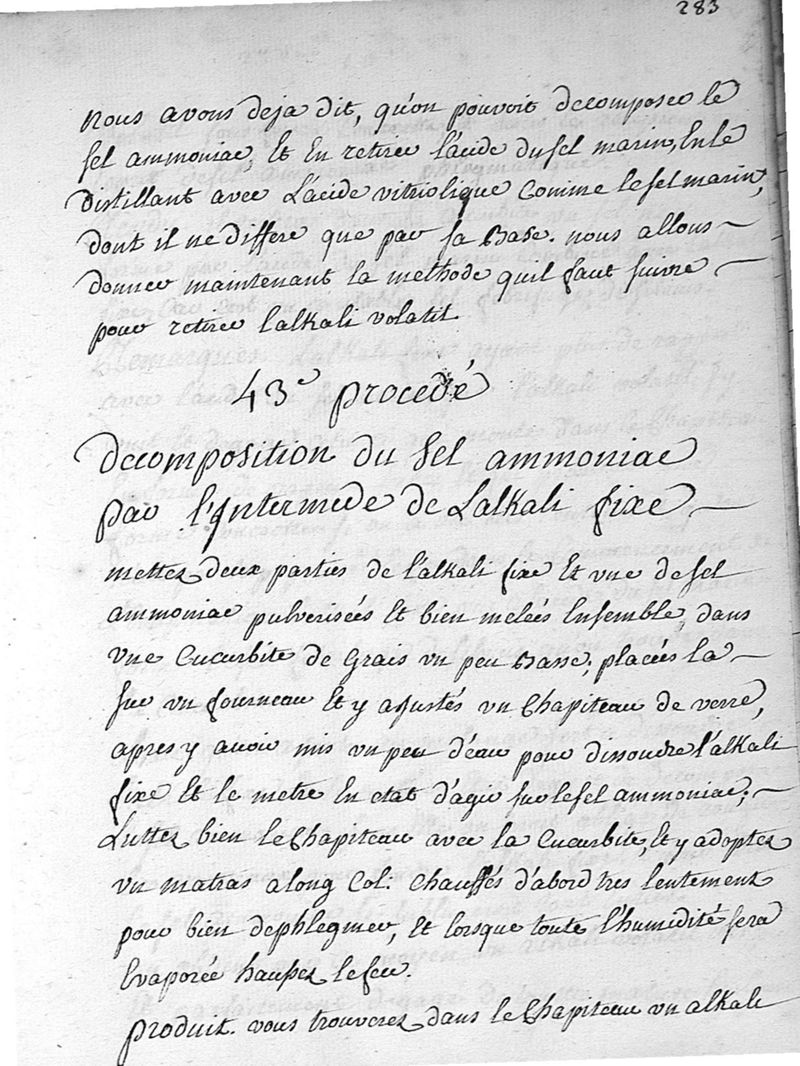 283
nous avons deja dit, qu'on pouvoit decomposer le
sel ammoniac, Et En retirer l'acide du sel marin, En le
Distillant avec L'acide vitriolique Comme le sel marin,
dont il ne differe que par sa Base. nous allons
donner maintenant la methode quil faut suivre
pour retirer l'alkali volatil.
43e procedé
Decomposition du sel ammoniac
par l'Intermede de Lalkali fixe
mettez deux parties de l'alkali fixe Et vne de sel
ammoniac pulverisées Et bien melées Ensemble, dans
vne Cucurbite de Grais vn peu Basse; placés la
sur vn fourneau Et y ajustés vn Chapiteau de verre,
apres y avoir mis vn peu d'eau pour dissoudre l'alkali
fixe Et le metre En etat d'agir sur le sel ammoniac;
Luttez bien le Chapiteau avec la Cucurbite, Et y adoptez
vn matras a long Col: Chauffés d'abord tres lentement
pour bien dephlegmer, Et lorsque toute l'humidité sera
Evaporée haussez le feu.
produit. vous trouverez dans le Chapiteau vn alkali